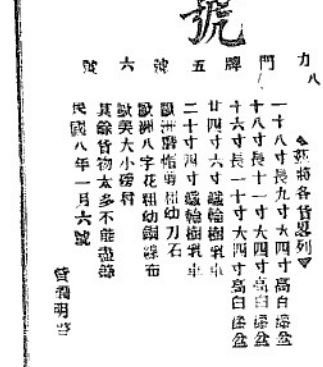 號
力八門牌五號六號
茲將各貨畧列
一十八寸長九寸大四寸高白瓷盆
十八寸長十一寸大四寸高白瓷盆
十六寸長一十寸大四寸高白瓷盆
廿四寸六寸鐵輪樹乳車
二十寸四寸鐵輪樹乳車
歐洲磨幼刀石
歐洲八字花粗幼銅線布
歐美大小磅
其餘貨物太多不能盡錄
民國八年一月六號
明